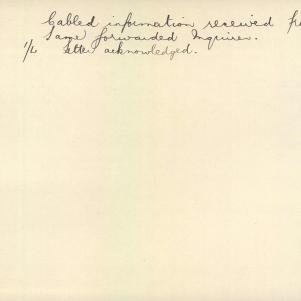 Cabled information received
Same forwarded Inquirer.
1/2 letter acknowledged.